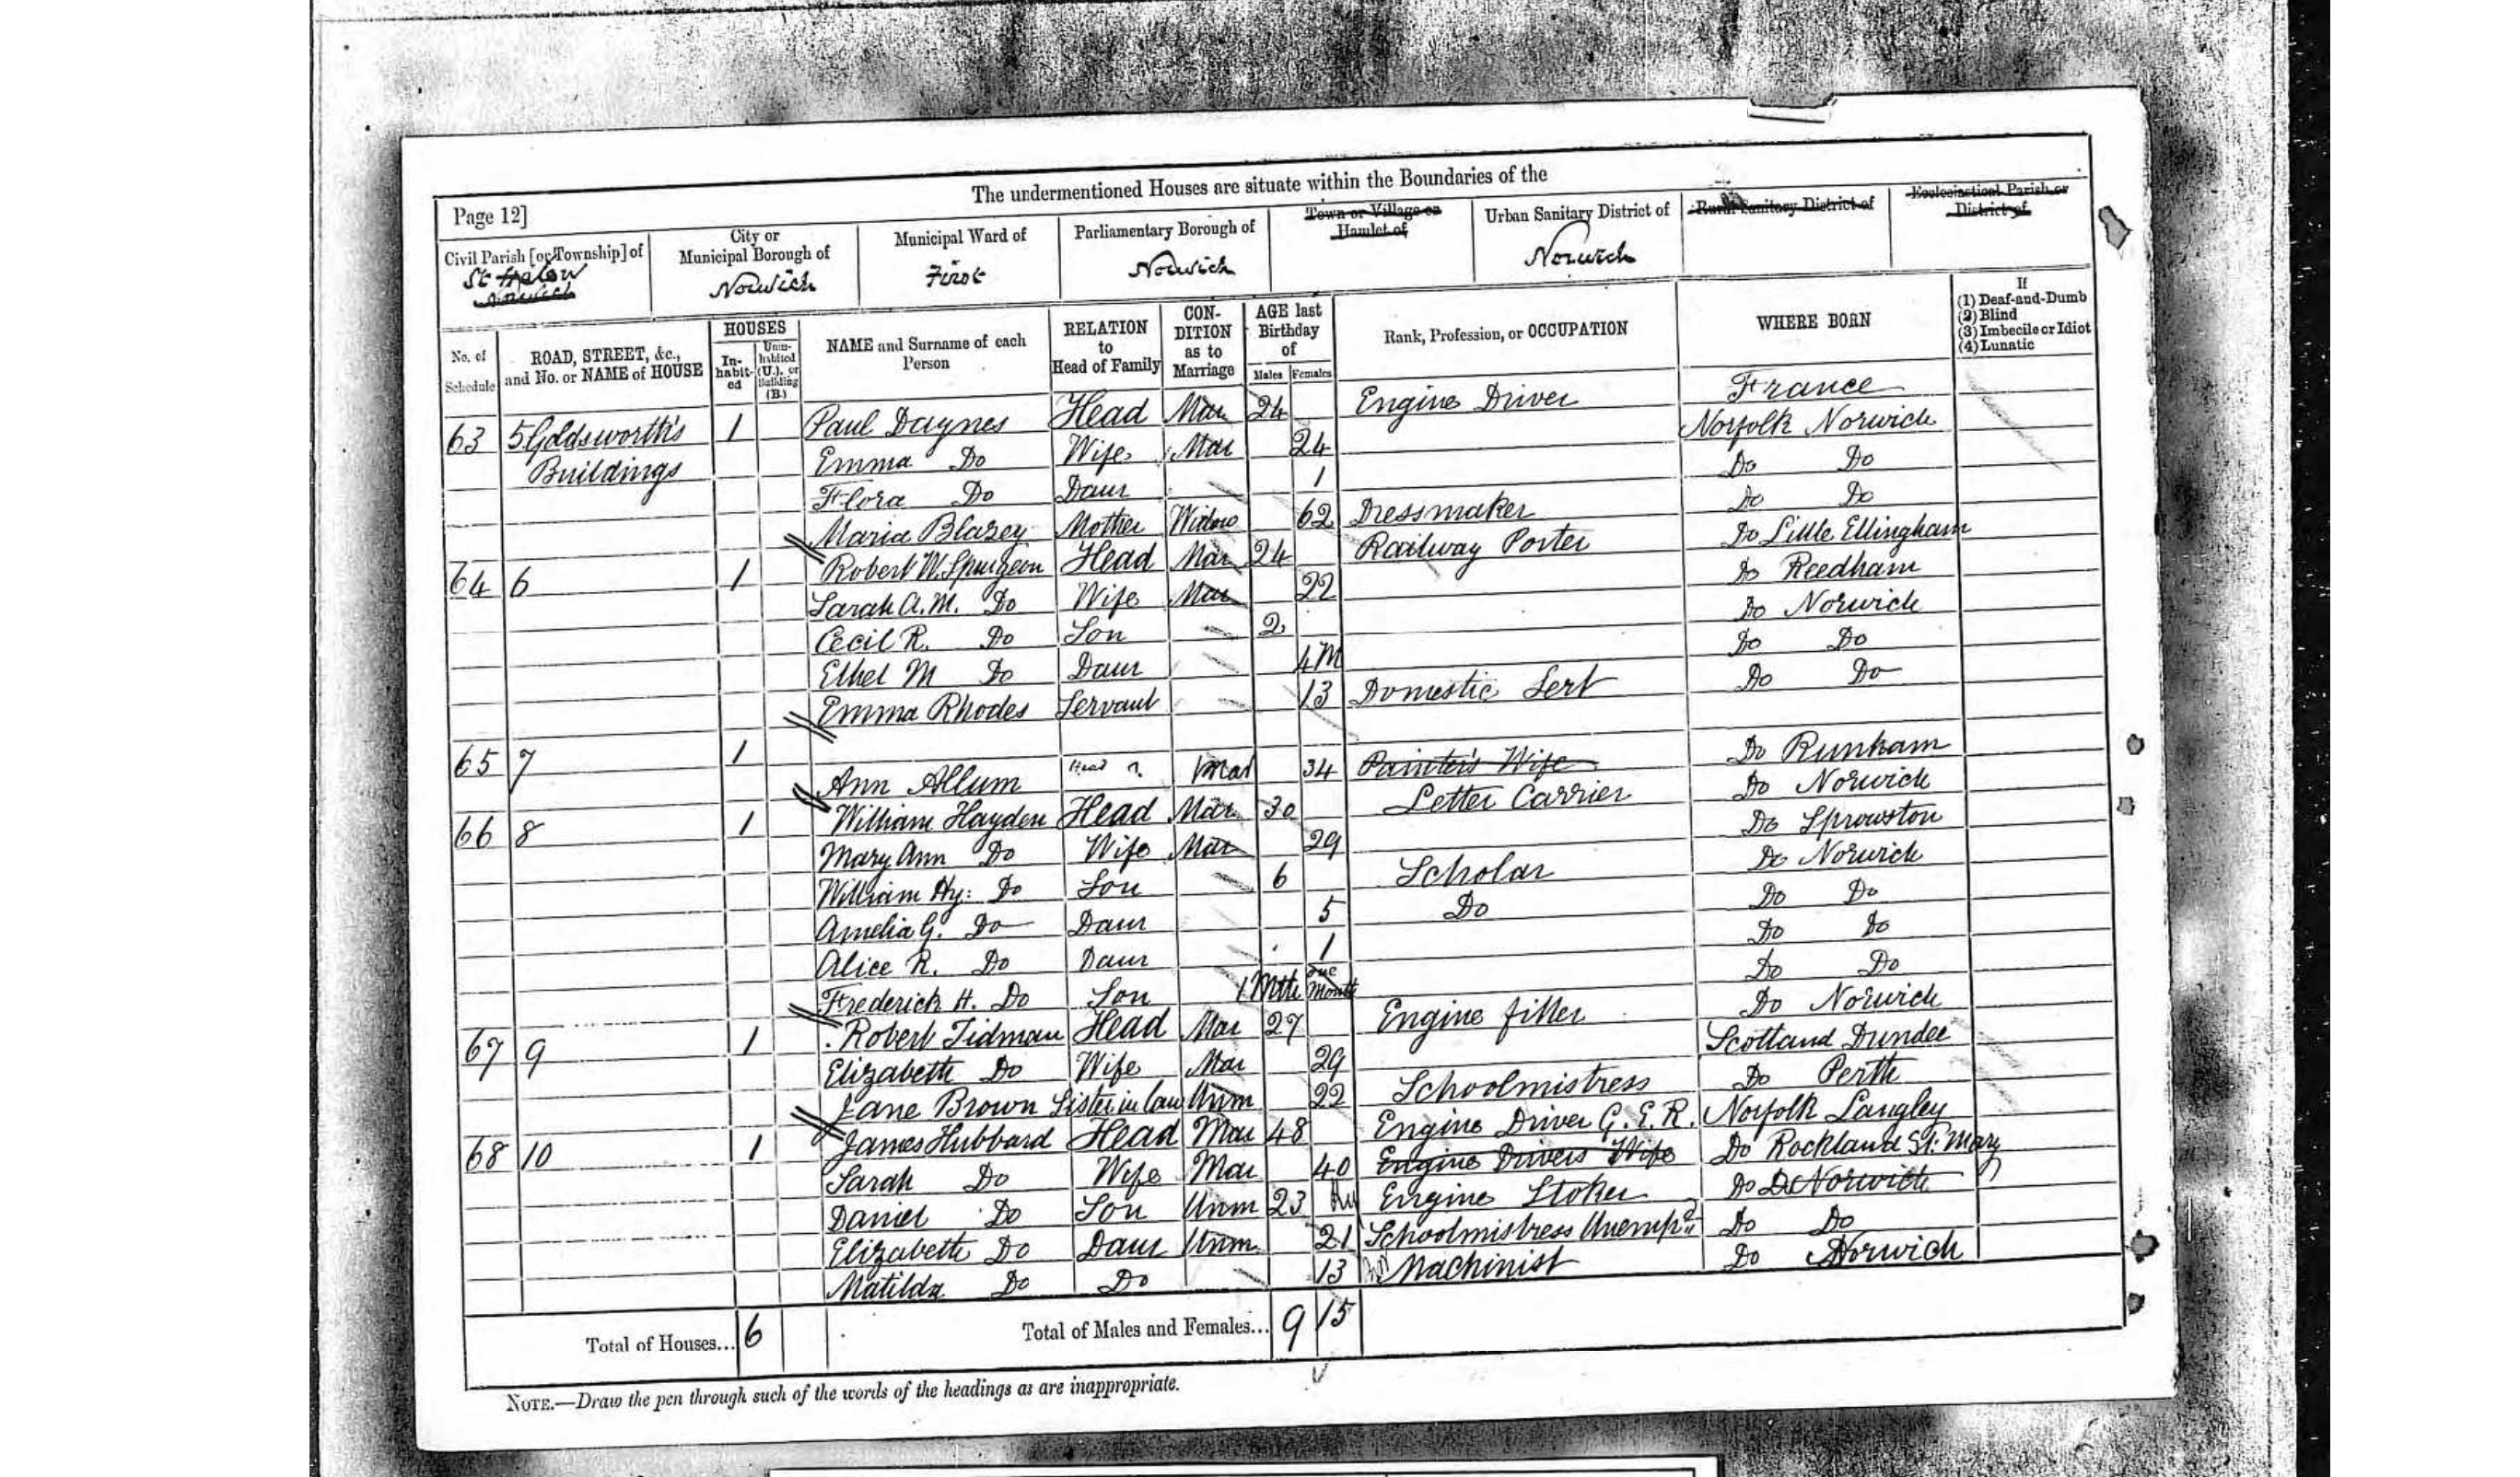 The undermentioned Houses are situate within the Boundaries of the
Page 12]
Civil Parish [or Township] of
St Helen
Norwich
City or
Municipal Borough of
Norwich
Municipal Ward of
First
Parliamentary Borough of
Norwich
Town or Village or
Hamlet of
Urban Sanitary District of
Norwich
Rural Sanitary District of
Ecclesiastical Parish or
District of
No. of
Schedule
ROAD, STREET, &c.,
and No. or NAME of HOUSE
HOUSES
In-
habit-
ed
Unin-
habited
(U.), or
Building
(B.)
NAME and Surname of each
Person
RELATION
to
Head of Family
CON-
DITION
as to
Marriage
AGE last
Birthday
of
Males Females
Rank, Profession, or OCCUPATION
WHERE BORN
If
(1) Deaf-and-Dumb
(2) Blind
(3) Imbecile or Idiot
(4) Lunatic
63 5 Goldsworth's 1 Paul Daynes Head Mar 24 Engine Driver France
Buildings Emma Do Wife Mar 24 Norfolk Norwich
Flora Do Daur 1 Do Do
Maria Blazey Mother Widow 62 Dressmaker Do Do
64 6 1 Robert W. Spurgeon Head Mar 24 Railway Porter Do Little Ellingham
Sarah A. M. Do Wife Mar 22 Do Reedham
Cecil R. Do Son 2 Do Norwich
Ethel M Do Daur 4M Do Do
Emma Rhodes Servant 13 Domestic Sert Do Do
65 7 1
Ann Allum Head Mar 34 Painter's Wife Do Runham
66 8 1 William Hayden Head Mar 30 Letter Carrier Do Norwich
Mary Ann Do Wife Mar 29 Do Sprowston
William Hy: Do Son 6 Scholar Do Norwich
Amelia G. Do Daur 5 Do Do Do
Alice R. Do Daur 1 Do Do
Frederick H. Do Son 1 Mth One Month Do Do
67 9 1 Robert Tidman Head Mar 27 Engine fitter Do Norwich
Elizabeth Do Wife Mar 29 Scotland Dundee
Jane Brown Sister in law Unm 22 Schoolmistress Do Perth
68 10 1 James Hubbard Head Mar 48 Engine Driver G. E. R. Norfolk Langley
Sarah Do Wife Mar 40 Engine Drivers Wife Do Rockland St. Mary
Daniel Do Son Unm 23 Engine Stoker Do Do Norwich
Elizabeth Do Daur Unm 21 Schoolmistress Unempd Do Do
Matilda Do Do 13 Machinist Do Norwich
Total of Houses... 6 Total of Males and Females... 9 15
NOTE.—Draw the pen through such of the words of the headings as are inappropriate.